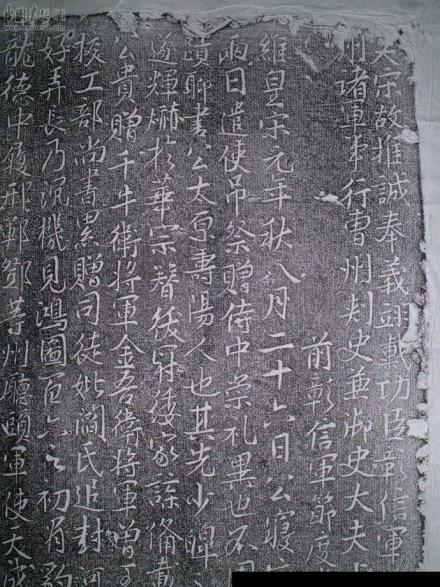 大宗故推誠奉義翊戴功臣彰信軍
州諸軍事行曹州刺史兼御史大夫上
前彰信軍節度
維皇宋元年秋八月二十六日公寢
兩日遣使弔祭贈侍中崇礼異也不
蹟聊書公太原壽陽人也其先少
遂輝爀於華宗簪後冠緌家諜備載
公貴贈千牛衛將軍金吾衛將軍曾
授工部尚書累贈司徒妣閻氏追封
好弄長乃沉機見鴻圖百六之初有
龍德中履邢鄆鄧等州廳頭軍使大